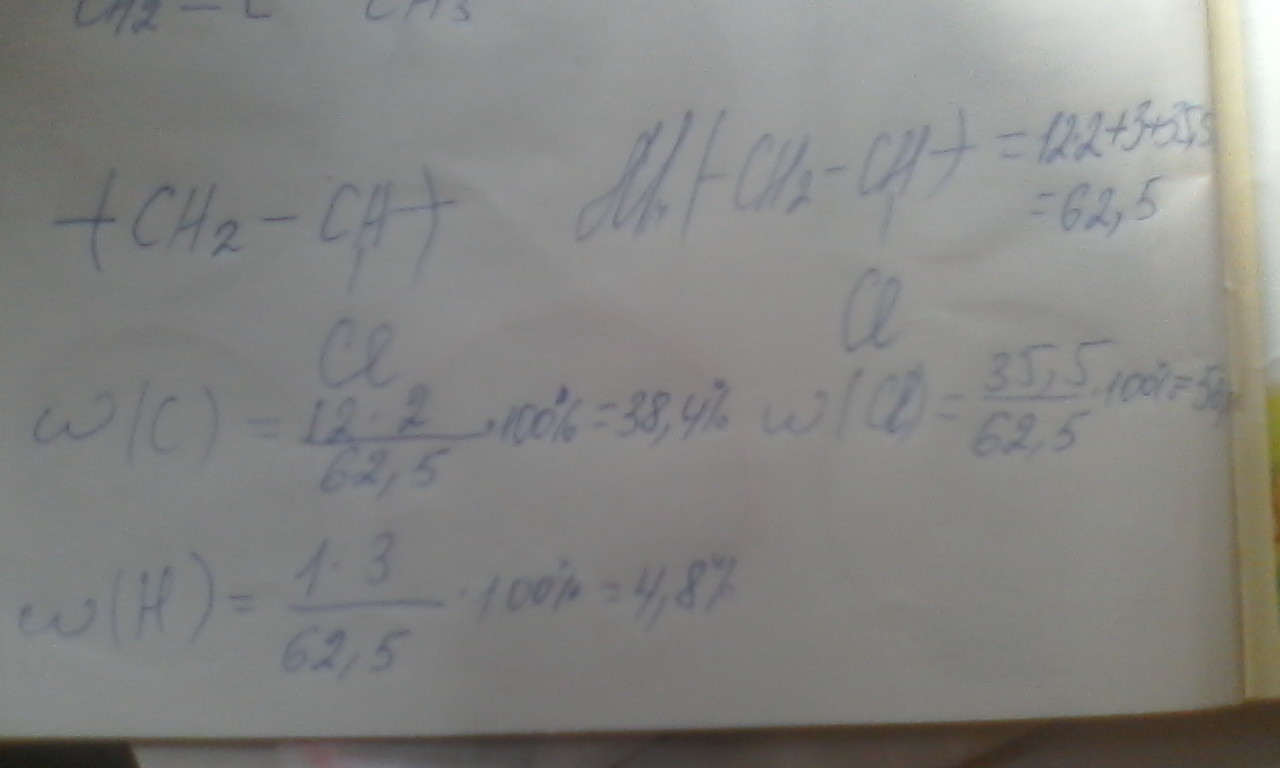 CH2 - C CH3
(-CH2 - CH-) Mr(-CH2 - CH-) = 12·2+3+35,5
= 62,5
Cl Cl
w(C) = 12·2 / 62,5 ·100% = 38,4% w(Cl) = 35,5 / 62,5 ·100% =
w(H) = 1·3 / 62,5 ·100% = 4,8%